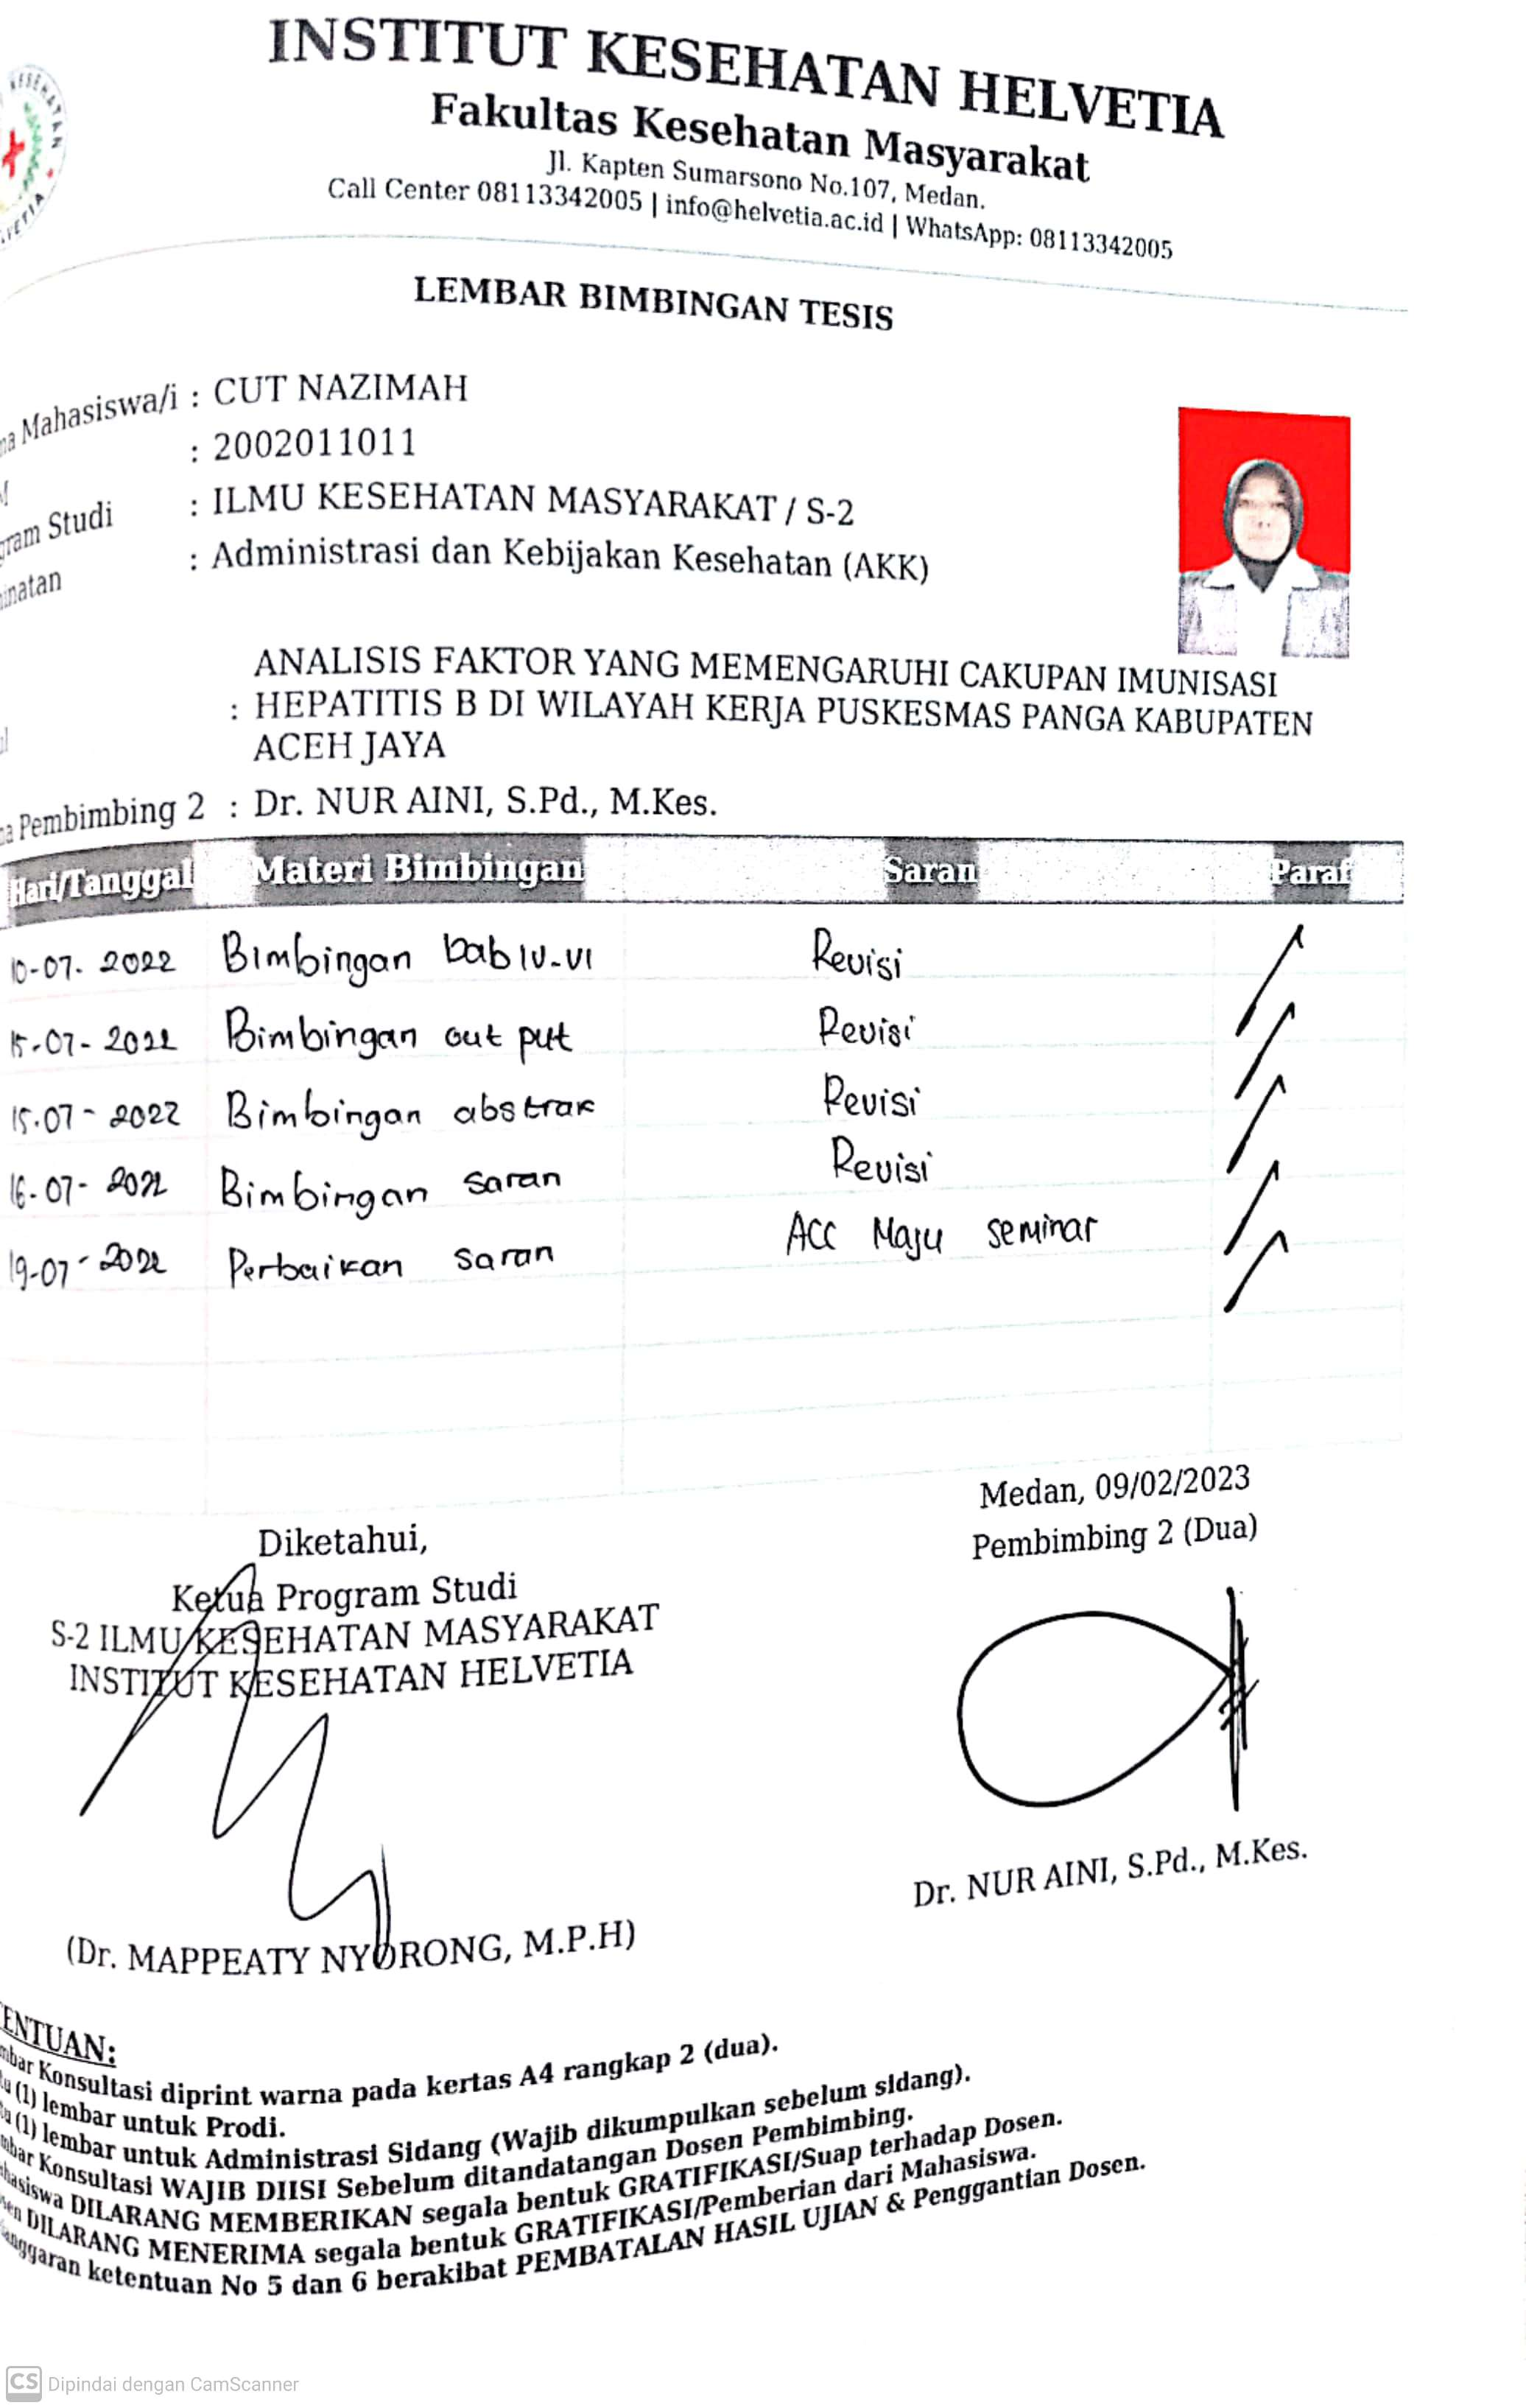 INSTITUT KESEHATAN HELVETIA
Fakultas Kesehatan Masyarakat
Jl. Kapten Sumarsono No.107, Medan.
Call Center 08113342005 | info@helvetia.ac.id | WhatsApp: 08113342005
LEMBAR BIMBINGAN TESIS
Mahasiswa/i : CUT NAZIMAH
: 2002011011
Studi : ILMU KESEHATAN MASYARAKAT / S-2
: Administrasi dan Kebijakan Kesehatan (AKK)
ANALISIS FAKTOR YANG MEMENGARUHI CAKUPAN IMUNISASI
: HEPATITIS B DI WILAYAH KERJA PUSKESMAS PANGA KABUPATEN
ACEH JAYA
Pembimbing 2 : Dr. NUR AINI, S.Pd., M.Kes.
Hari/Tanggal Materi Bimbingan Saran Paraf
10-07-2022 Bimbingan bab IV-VI Revisi
15-07-2022 Bimbingan out put Revisi
15-07-2022 Bimbingan abstrak Revisi
16-07-2022 Bimbingan saran Revisi
19-07-2022 Perbaikan saran ACC Maju seminar
Medan, 09/02/2023
Pembimbing 2 (Dua)
Diketahui,
Ketua Program Studi
S-2 ILMU KESEHATAN MASYARAKAT
INSTITUT KESEHATAN HELVETIA
Dr. NUR AINI, S.Pd., M.Kes.
(Dr. MAPPEATY NYORONG, M.P.H)
ENTUAN:
Konsultasi diprint warna pada kertas A4 rangkap 2 (dua).
(1) lembar untuk Prodi.
(1) lembar untuk Administrasi Sidang (Wajib dikumpulkan sebelum sidang).
Konsultasi WAJIB DIISI Sebelum ditandatangan Dosen Pembimbing.
DILARANG MEMBERIKAN segala bentuk GRATIFIKASI/Suap terhadap Dosen.
DILARANG MENERIMA segala bentuk GRATIFIKASI/Pemberian dari Mahasiswa.
ketentuan No 5 dan 6 berakibat PEMBATALAN HASIL UJIAN & Penggantian Dosen.
CS Dipindai dengan CamScanner